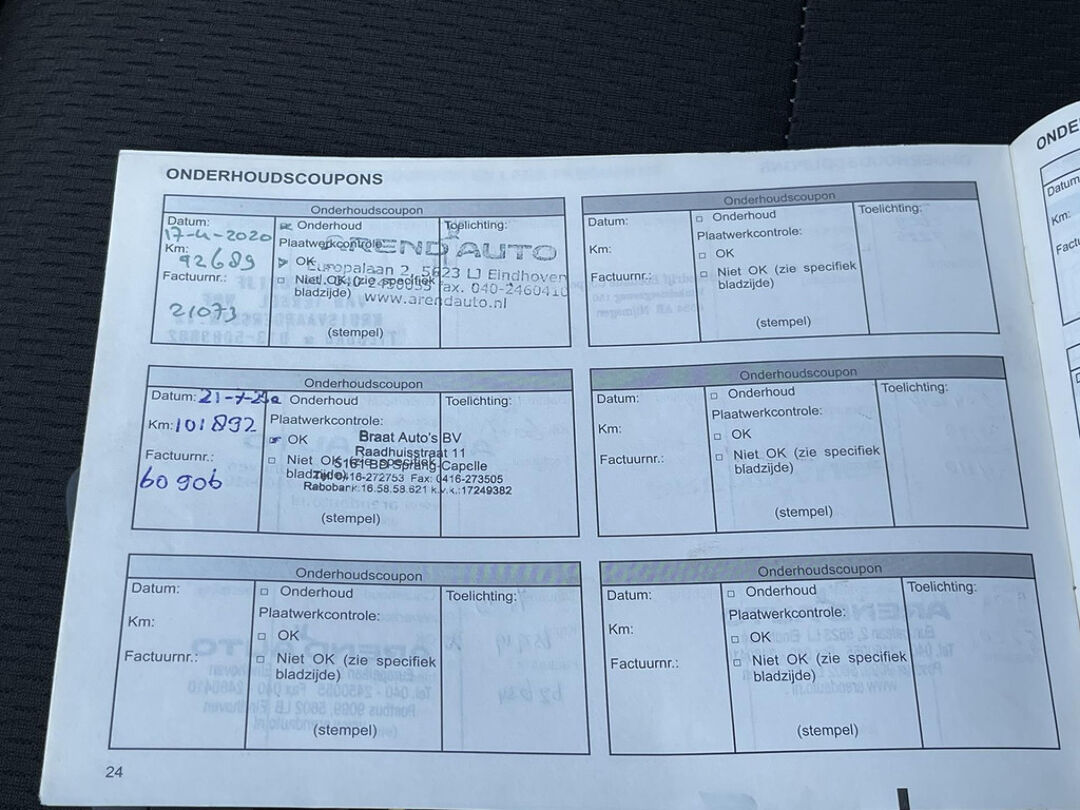 ONDERHOUDSCOUPONS
Onderhoudscoupon
Datum:
17-4-2020
Km:
92689
Factuurnr.:
21073
Onderhoud
Plaatwerkcontrole:
OK
Niet OK (zie specifiek
bladzijde)
(stempel)
Toelichting:
AREND AUTO
Europalaan 2, 5623 LJ Eindhoven
Fax. 040-2460410
www.arendauto.nl
Onderhoudscoupon
Datum:
Km:
Factuurnr.:
Onderhoud
Plaatwerkcontrole:
OK
Niet OK (zie specifiek
bladzijde)
(stempel)
Toelichting:
Onderhoudscoupon
Datum: 21-7-
Km: 101892
Factuurnr.:
60906
Onderhoud
Plaatwerkcontrole:
OK
Niet OK (zie specifiek
bladzijde)
(stempel)
Toelichting:
Braat Auto's BV
Raadhuisstraat 11
5161 BD Sprang-Capelle
0416-272753 Fax: 0416-273505
Rabobank:16.58.58.621 k.v.k.:17249382
Onderhoudscoupon
Datum:
Km:
Factuurnr.:
Onderhoud
Plaatwerkcontrole:
OK
Niet OK (zie specifiek
bladzijde)
(stempel)
Toelichting:
Onderhoudscoupon
Datum:
Km:
Factuurnr.:
Onderhoud
Plaatwerkcontrole:
OK
Niet OK (zie specifiek
bladzijde)
(stempel)
Toelichting:
Onderhoudscoupon
Datum:
Km:
Factuurnr.:
Onderhoud
Plaatwerkcontrole:
OK
Niet OK (zie specifiek
bladzijde)
(stempel)
Toelichting:
24
ONDE
Datum
Km:
Fact